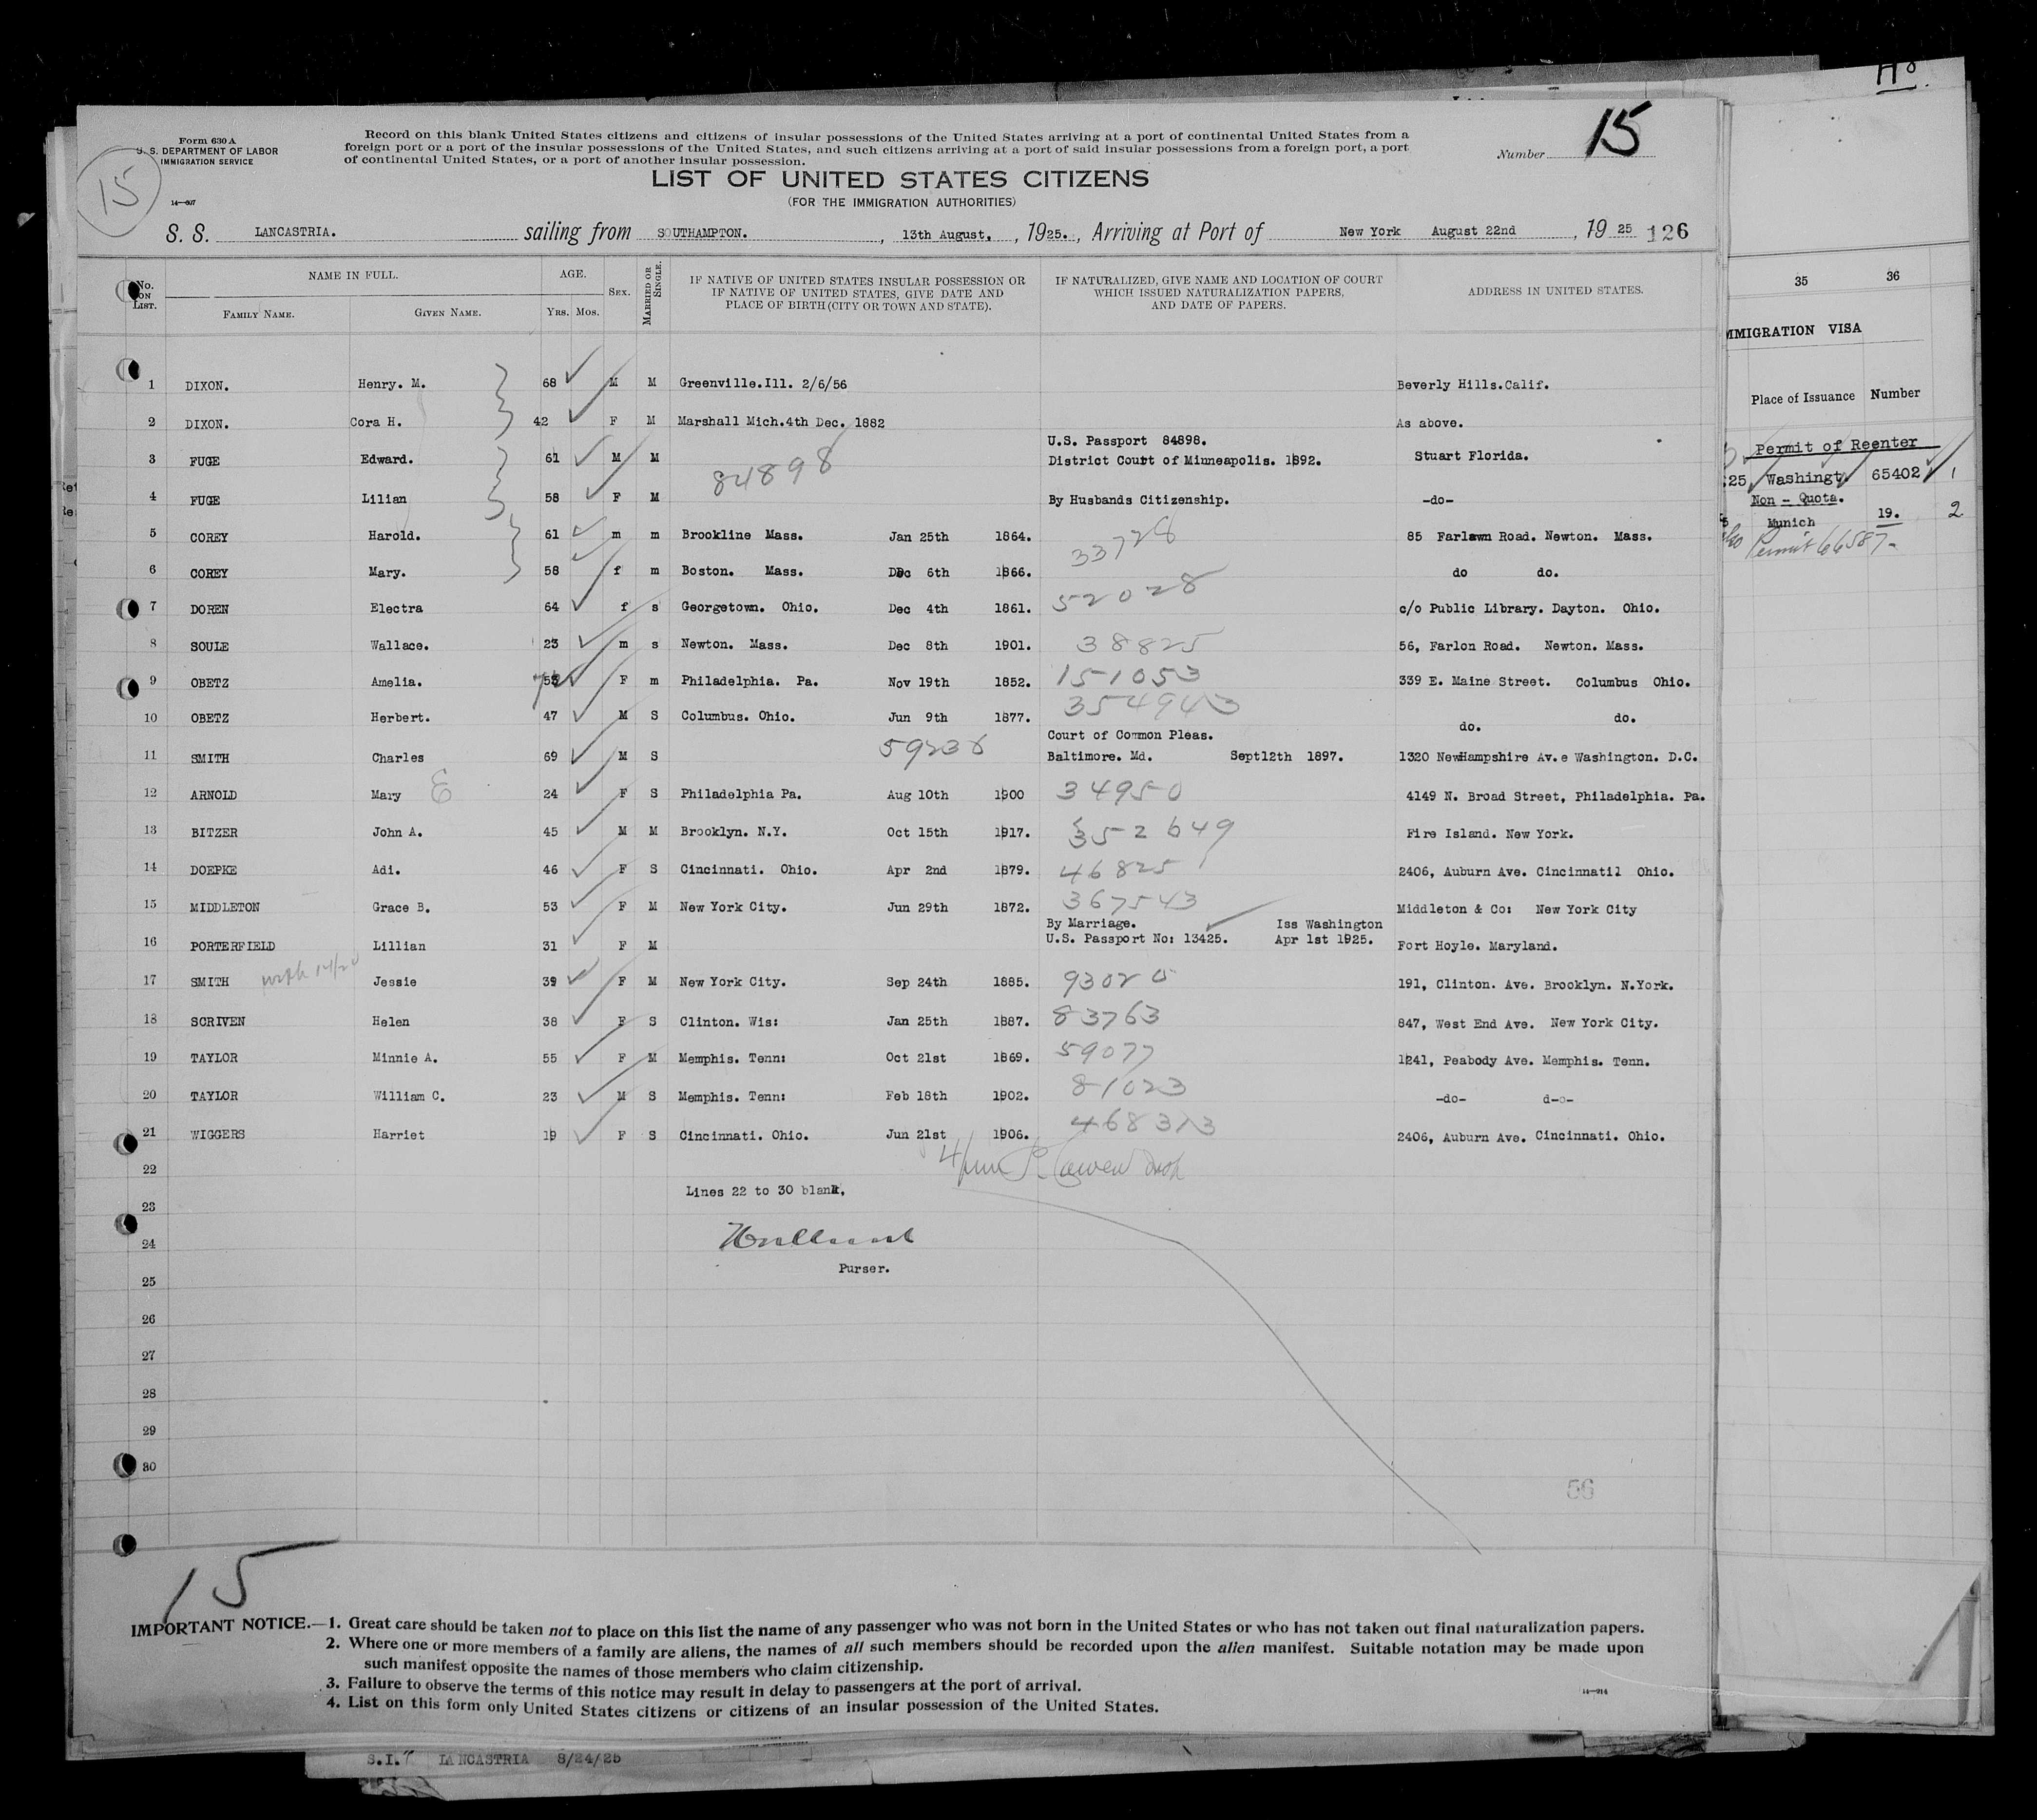 H8.
Form 630 A
U. S. DEPARTMENT OF LABOR
IMMIGRATION SERVICE
14—307
15
Record on this blank United States citizens and citizens of insular possessions of the United States arriving at a port of continental United States from a
foreign port or a port of the insular possessions of the United States, and such citizens arriving at a port of said insular possessions from a foreign port, a port
of continental United States, or a port of another insular possession.
Number 15
LIST OF UNITED STATES CITIZENS
(FOR THE IMMIGRATION AUTHORITIES)
S. S. LANCASTRIA. sailing from SOUTHAMPTON. , 13th August, , 1925. , Arriving at Port of New York August 22nd , 19 25 126
No. ON LIST. NAME IN FULL. FAMILY NAME. GIVEN NAME. AGE. YRS. MOS. SEX. MARRIED OR SINGLE. IF NATIVE OF UNITED STATES INSULAR POSSESSION OR IF NATIVE OF UNITED STATES, GIVE DATE AND PLACE OF BIRTH (CITY OR TOWN AND STATE). IF NATURALIZED, GIVE NAME AND LOCATION OF COURT WHICH ISSUED NATURALIZATION PAPERS, AND DATE OF PAPERS. ADDRESS IN UNITED STATES.
1 DIXON. Henry. M. 68 M M Greenville.Ill. 2/6/56 Beverly Hills.Calif.
2 DIXON. Cora H. 42 F M Marshall Mich.4th Dec. 1882 As above.
U.S. Passport 84898.
3 FUGE Edward. 61 M M 84898 District Court of Minneapolis. 1892. Stuart Florida.
4 FUGE Lilian 58 F M By Husbands Citizenship. -do-
5 COREY Harold. 61 m m Brookline Mass. Jan 25th 1864. 33728 85 Farlawn Road. Newton. Mass.
6 COREY Mary. 58 f m Boston. Mass. Dec 6th 1866. do do.
7 DOREN Electra 64 f s Georgetown. Ohio. Dec 4th 1861. 52028 c/o Public Library. Dayton. Ohio.
8 SOULE Wallace. 23 m s Newton. Mass. Dec 8th 1901. 38825 56, Farlon Road. Newton. Mass.
9 OBETZ Amelia. 72 F m Philadelphia. Pa. Nov 19th 1852. 151053 339 E. Maine Street. Columbus Ohio.
10 OBETZ Herbert. 47 M S Columbus. Ohio. Jun 9th 1877. 354943 do. do.
Court of Common Pleas.
11 SMITH Charles 69 M S 59236 Baltimore. Md. Sept12th 1897. 1320 NewHampshire Av.e Washington. D.C.
12 ARNOLD Mary E 24 F S Philadelphia Pa. Aug 10th 1900 34950 4149 N. Broad Street, Philadelphia. Pa.
13 BITZER John A. 45 M M Brooklyn. N.Y. Oct 15th 1917. 352649 Fire Island. New York.
14 DOEPKE Adi. 46 F S Cincinnati. Ohio. Apr 2nd 1879. 46825 2406, Auburn Ave. Cincinnatil Ohio.
15 MIDDLETON Grace B. 53 F M New York City. Jun 29th 1872. 367543 Middleton & Co: New York City
By Marriage. Iss Washington
16 PORTERFIELD Lillian 31 F M U.S. Passport No: 13425. Apr 1st 1925. Fort Hoyle. Maryland.
17 SMITH with 14/20 Jessie 39 F M New York City. Sep 24th 1885. 93020 191, Clinton. Ave. Brooklyn. N.York.
18 SCRIVEN Helen 38 F S Clinton. Wis: Jan 25th 1887. 83763 847, West End Ave. New York City.
19 TAYLOR Minnie A. 55 F M Memphis. Tenn: Oct 21st 1869. 59077 1241, Peabody Ave. Memphis. Tenn.
20 TAYLOR William C. 23 M S Memphis. Tenn: Feb 18th 1902. 81023 -do- d-o-
21 WIGGERS Harriet 19 F S Cincinnati. Ohio. Jun 21st 1906. 468313 2406, Auburn Ave. Cincinnati. Ohio.
22
Lines 22 to 30 blank,
23
24
Purser.
25
26
27
28
29
30
56
15
IMPORTANT NOTICE.—1. Great care should be taken not to place on this list the name of any passenger who was not born in the United States or who has not taken out final naturalization papers.
2. Where one or more members of a family are aliens, the names of all such members should be recorded upon the alien manifest. Suitable notation may be made upon
such manifest opposite the names of those members who claim citizenship.
3. Failure to observe the terms of this notice may result in delay to passengers at the port of arrival.
4. List on this form only United States citizens or citizens of an insular possession of the United States.
14—914
S.I. LANCASTRIA 8/24/25
35 36
IMMIGRATION VISA
Place of Issuance Number
Permit of Reenter
25 Washingt 65402 1
Non - Quota.
Munich 19. 2
Permit 66587-